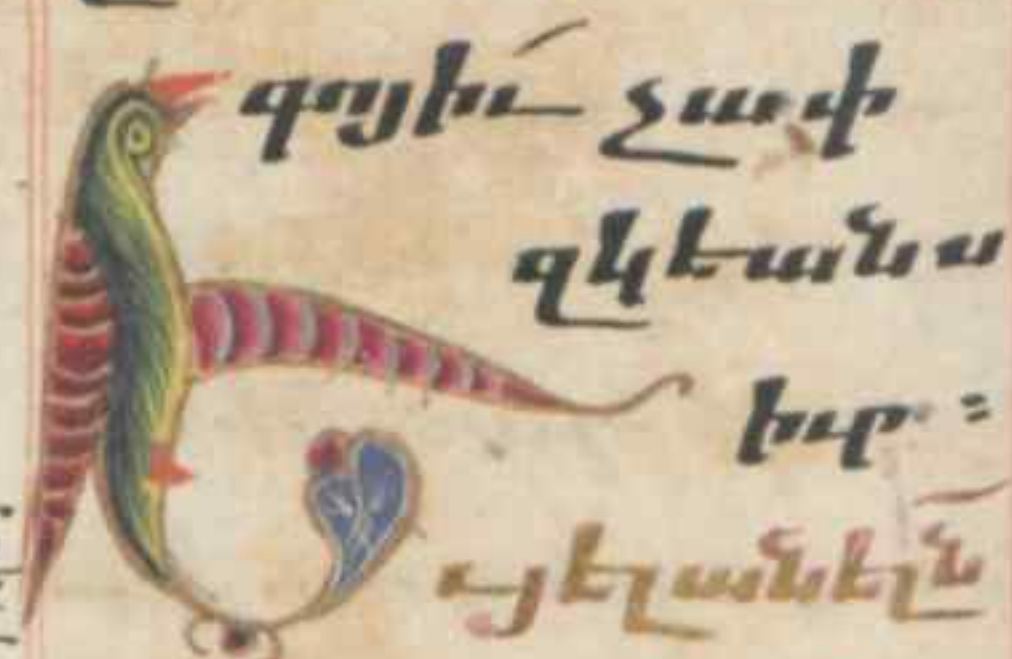 գոյիւ չափ
զկեանս
իւր։
Եւ յելանելն